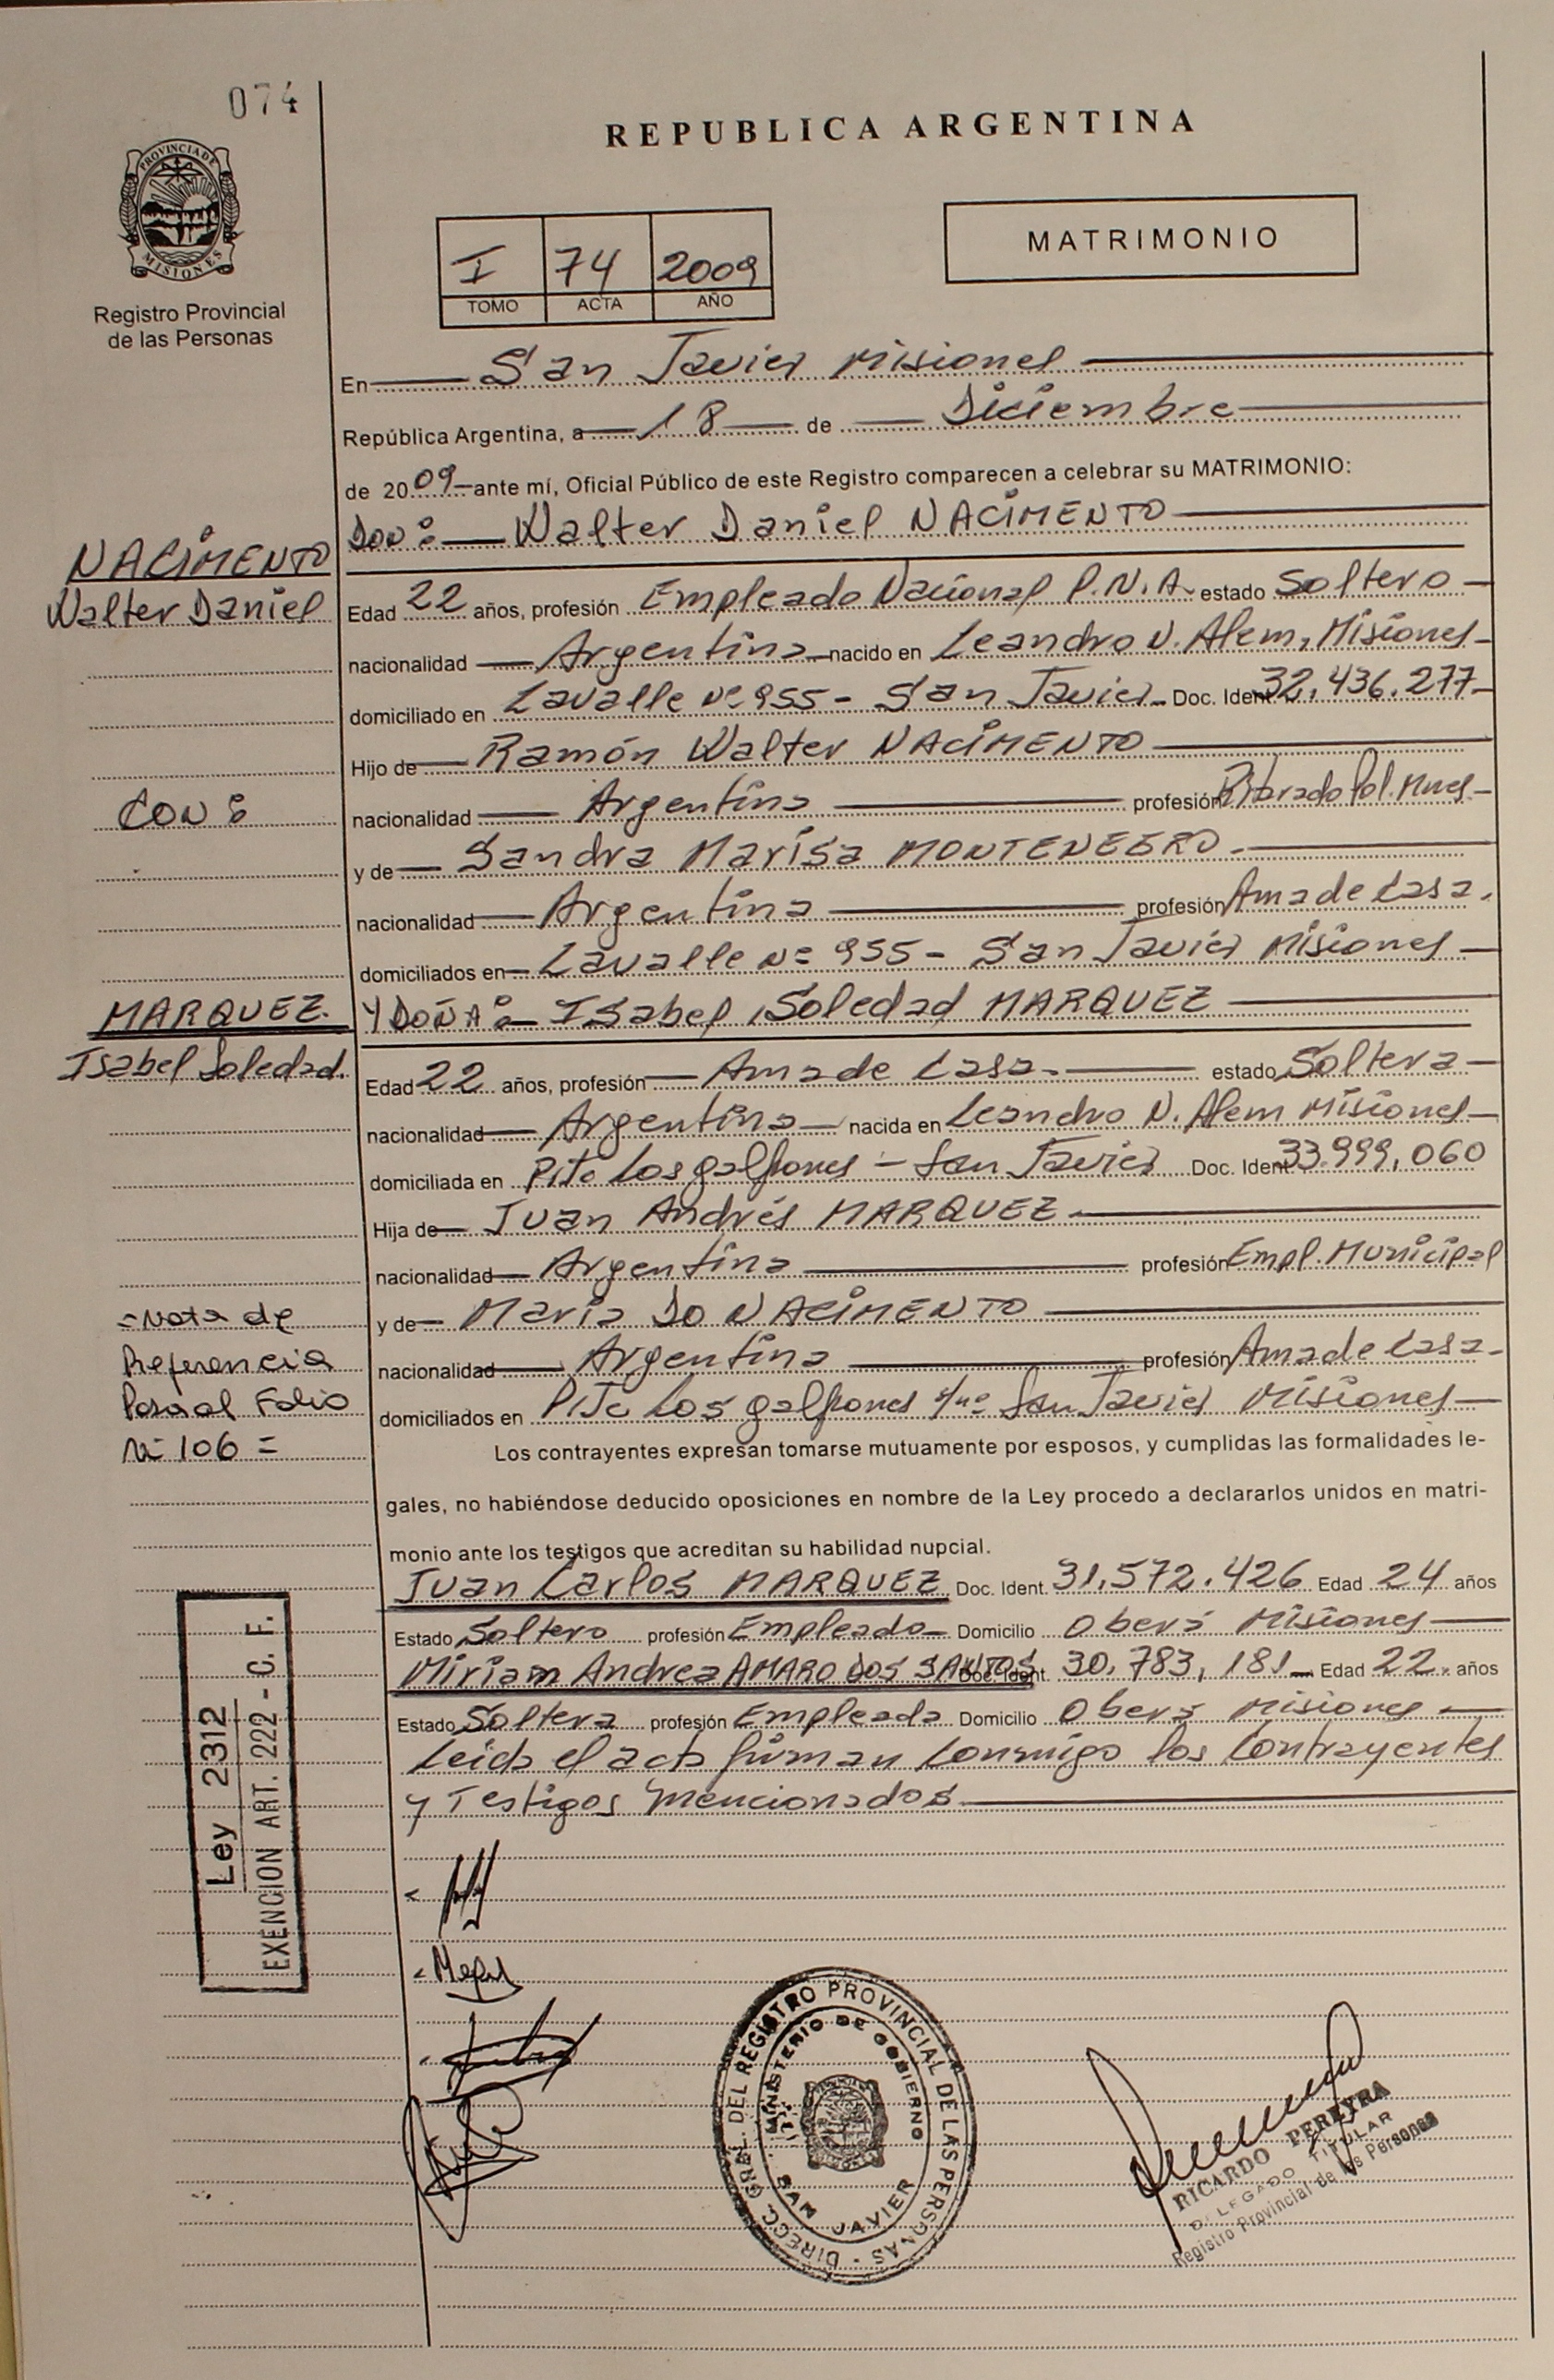 074
REPUBLICA ARGENTINA
PROVINCIA DE
MISIONES
Registro Provincial
de las Personas
I 74 2009
TOMO ACTA AÑO
MATRIMONIO
En San Javier Misiones
República Argentina, a 18 de Diciembre
de 2009 ante mí, Oficial Público de este Registro comparecen a celebrar su MATRIMONIO:
DON: Walter Daniel NACIMENTO
NACIMENTO
Walter Daniel
Edad 22 años, profesión Empleado Nacional P.N.A. estado Soltero
nacionalidad Argentina nacido en Leandro N. Alem, Misiones
domiciliado en Lavalle Nº 955 - San Javier Doc. Ident. 32.436.277
Hijo de Ramón Walter NACIMENTO
CON:
nacionalidad Argentina profesión Pol. Mnes
y de Sandra Marísa MONTENEGRO.
nacionalidad Argentina profesión Ama de Casa.
domiciliados en Lavalle Nº 955 - San Javier Misiones
MARQUEZ.
Isabel Soledad.
Y DOÑA: Isabel Soledad MARQUEZ
Edad 22 años, profesión Ama de Casa. estado Soltera
nacionalidad Argentina nacida en Leandro N. Alem Misiones
domiciliada en Pije Los galpones - San Javier Doc. Ident. 33.999.060
Hija de Juan Andrés MARQUEZ.
nacionalidad Argentina profesión Empl. Municipal
y de María DO NACIMENTO
nacionalidad Argentina profesión Ama de Casa.
domiciliados en Pije Los galpones San Javier Misiones
- Nota de
Referencia
Pasa al Folio
Nº 106 =
Los contrayentes expresan tomarse mutuamente por esposos, y cumplidas las formalidades le-
gales, no habiéndose deducido oposiciones en nombre de la Ley procedo a declararlos unidos en matri-
monio ante los testigos que acreditan su habilidad nupcial.
Juan Carlos MARQUEZ Doc. Ident. 31.572.426 Edad 24 años
Estado Soltero profesión Empleado Domicilio Oberá Misiones
Miriam Andrea AMARO DOS SANTOS Doc. Ident. 30.783.181 Edad 22 años
Estado Soltera profesión Empleada Domicilio Oberá Misiones
Leída el acta firman conmigo los Contrayentes
y Testigos mencionados
Ley 2312
EXENCION ART. 222 - C. F.
DIRECC. GRAL. DEL REGISTRO PROVINCIAL DE LAS PERSONAS
MINISTERIO DE GOBIERNO
SAN JAVIER
RICARDO PEREYRA
DELEGADO TITULAR
Registro Provincial de las Personas